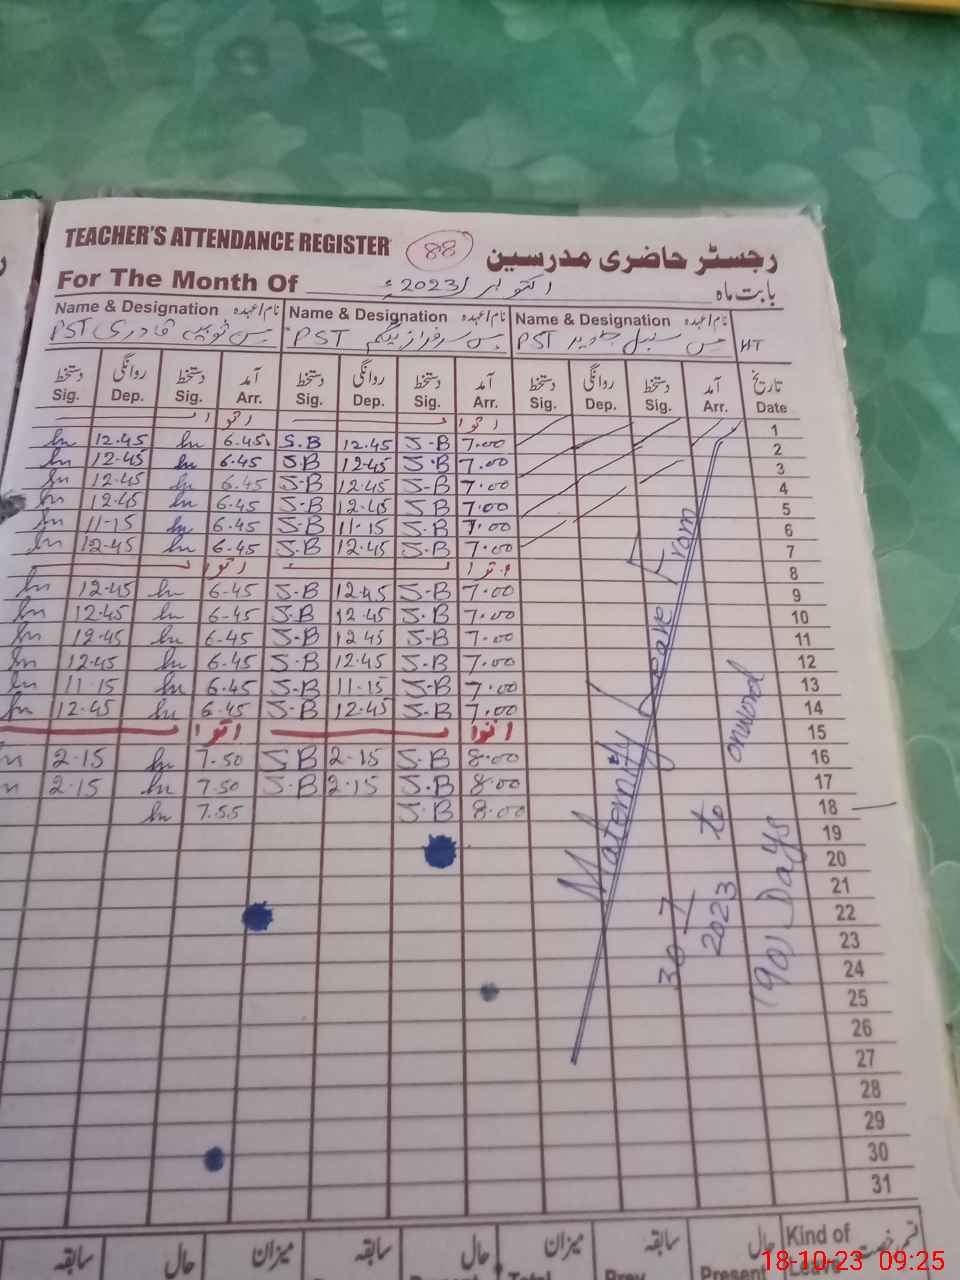 TEACHER'S ATTENDANCE REGISTER 88 رجسٹر حاضری مدرسین
For The Month Of اکتوبر 2023ء بابت ماہ
Name & Designation نام/عہدہ Name & Designation نام/عہدہ Name & Designation نام/عہدہ
مس ثوبیہ قادری PST مس سرفراز بیگم PST مس سنبل جاوید PST HT
دستخط روانگی دستخط آمد دستخط روانگی دستخط آمد دستخط روانگی دستخط آمد تاریخ
Sig. Dep. Sig. Arr. Sig. Dep. Sig. Arr. Sig. Dep. Sig. Arr. Date
اتوار اتوار 1
hn 12.45 hn 6.45 S.B 12.45 S.B 7.00 2
hn 12.45 hn 6.45 S.B 12.45 S.B 7.00 3
hn 12.45 hn 6.45 S.B 12.45 S.B 7.00 4
hn 12.45 hn 6.45 S.B 12.45 S.B 7.00 5
hn 11.15 hn 6.45 S.B 11.15 S.B 7.00 6
hn 12.45 hn 6.45 S.B 12.45 S.B 7.00 7
اتوار اتوار 8
hn 12.45 hn 6.45 S.B 12.45 S.B 7.00 9
hn 12.45 hn 6.45 S.B 12.45 S.B 7.00 10
hn 12.45 hn 6.45 S.B 12.45 S.B 7.00 11
hn 12.45 hn 6.45 S.B 12.45 S.B 7.00 12
hn 11.15 hn 6.45 S.B 11.15 S.B 7.00 13
hn 12.45 hn 6.45 S.B 12.45 S.B 7.00 14
اتوار اتوار 15
hn 2.15 hn 7.50 S.B 2.15 S.B 8.00 16
hn 2.15 hn 7.50 S.B 2.15 S.B 8.00 17
hn 7.55 S.B 8.00 18
19
20
21
22
23
24
25
26
27
28
29
30
31
Maternity Leave From
30 7 2023 to onword
(90) Days
سابقہ حال میزان سابقہ حال میزان سابقہ حال Kind of قسم رخصت
Total Prev. Present Leave
18-10-23 09:25